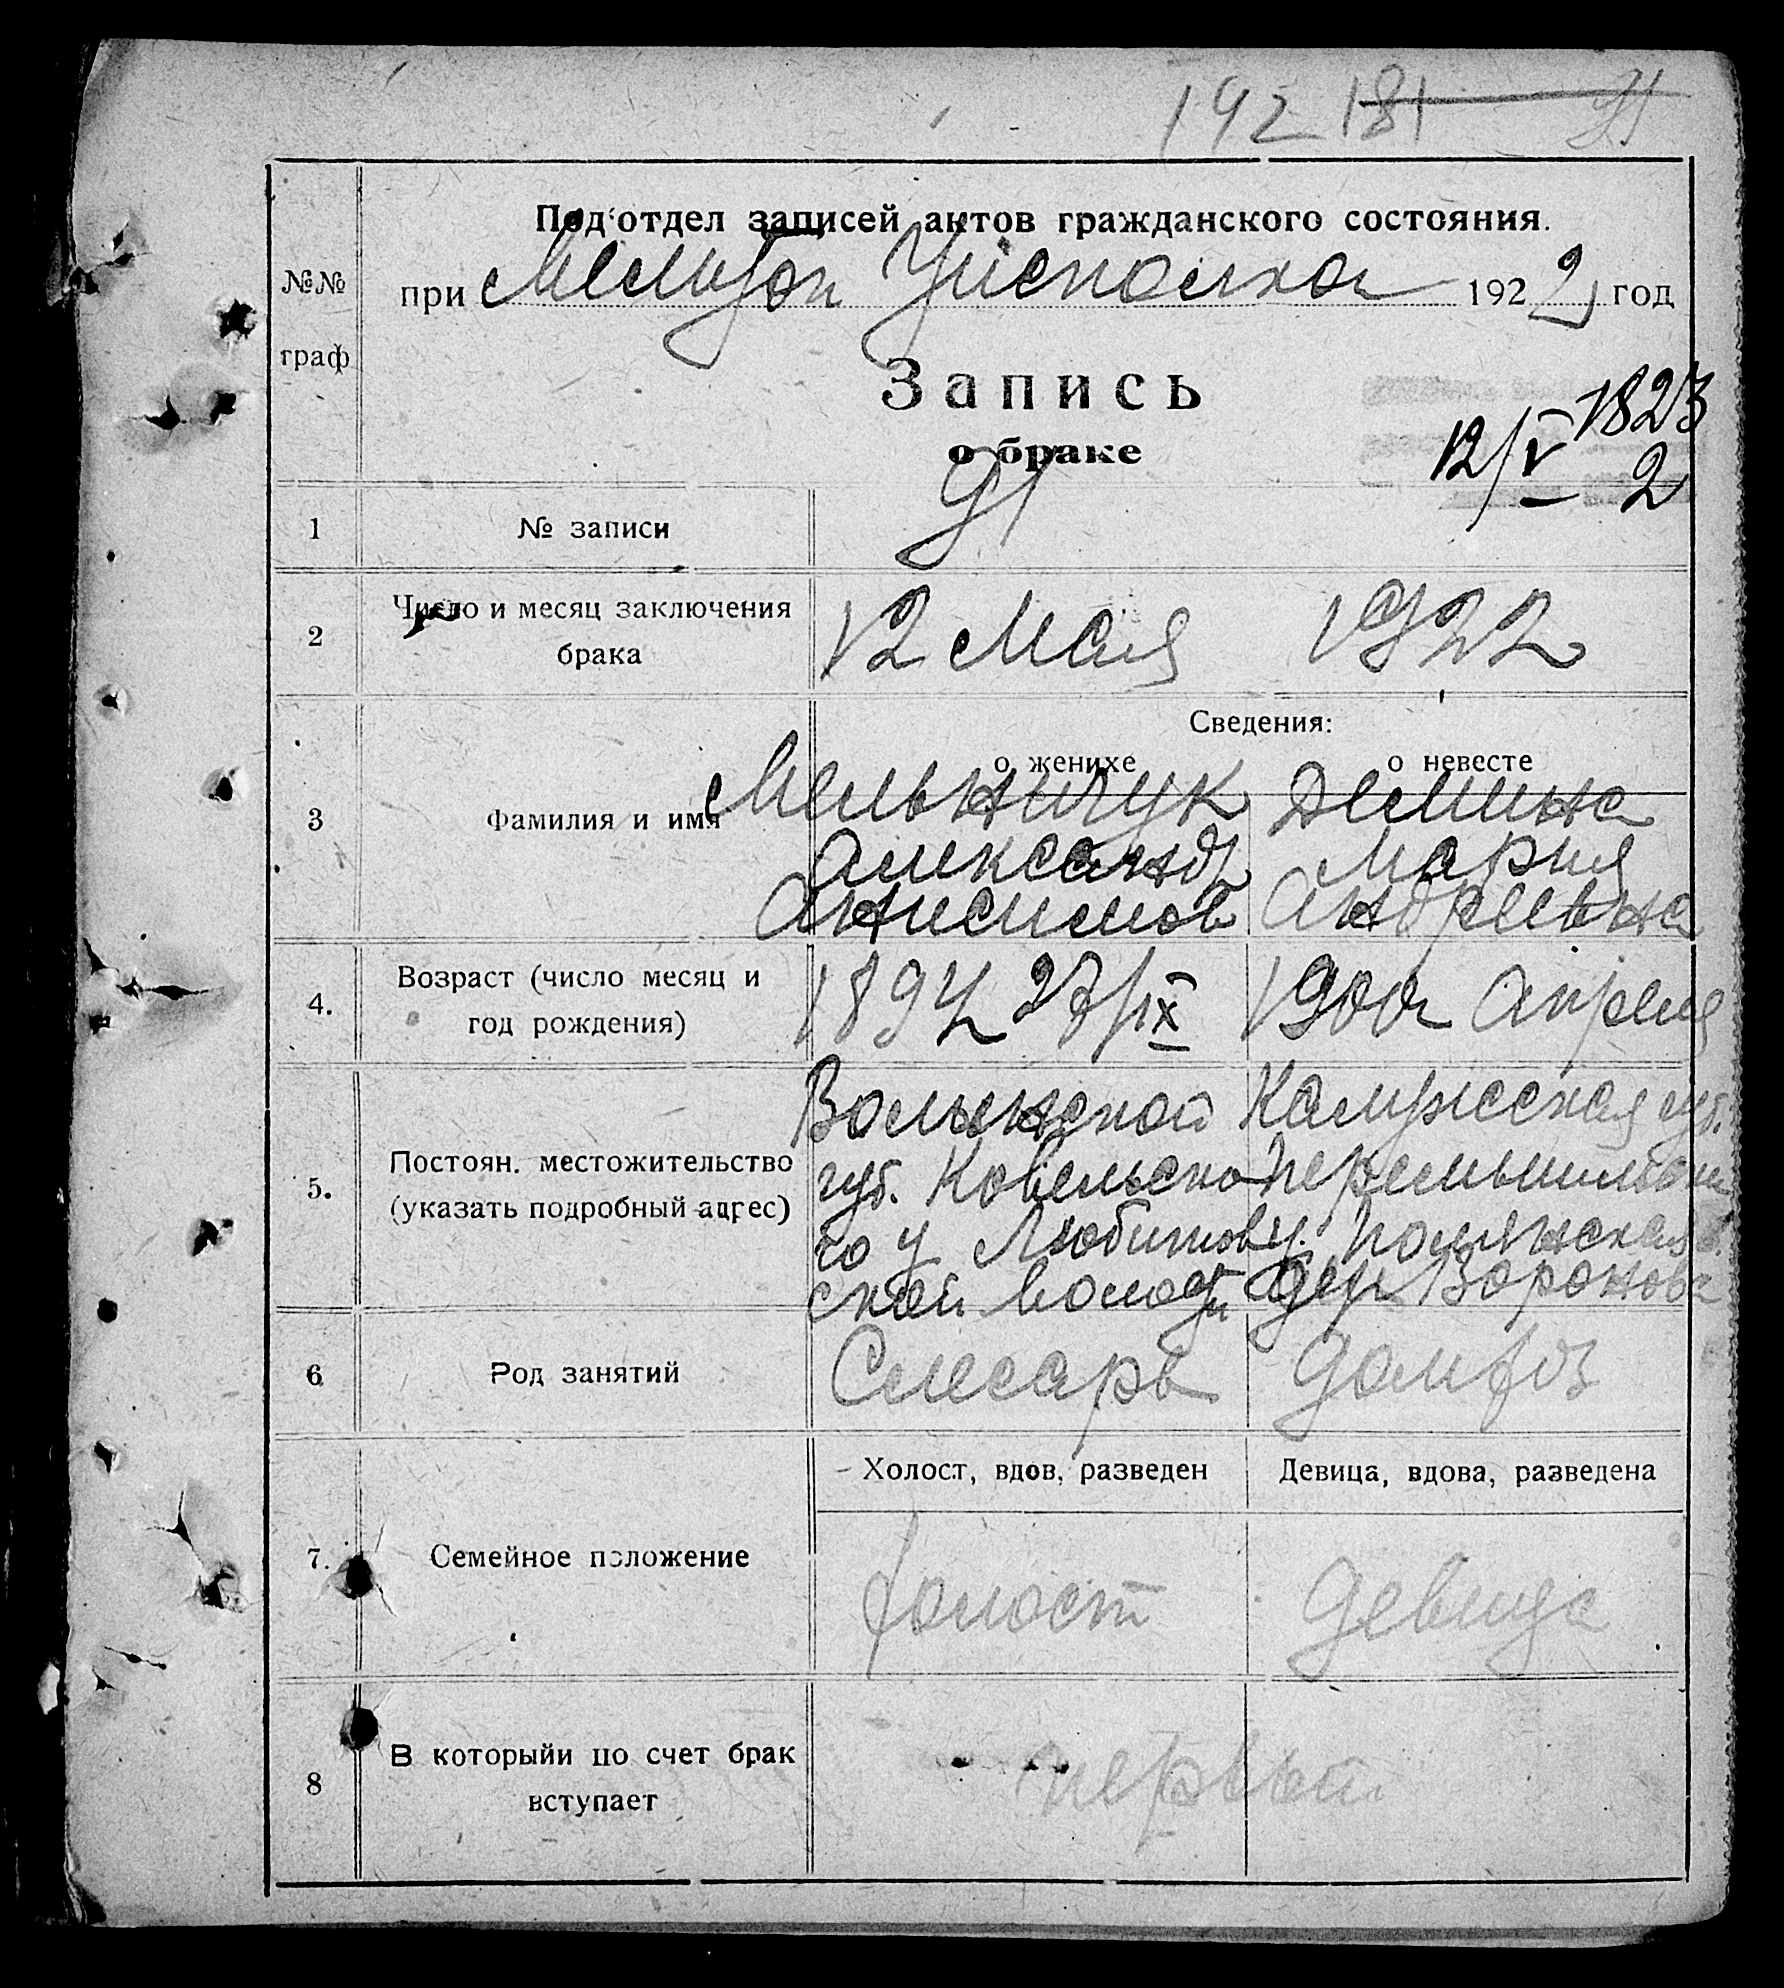 192 181 91
Под'отдел записей актов гражданского состояния.
№№
при Мелит Уисполкома 1922 год
граф
Запись
о браке
12/V 1823
2
1 № записи 91
2 Число и месяц заключения брака 12 мая 1922
Сведения:
о женихе о невесте
3 Фамилия и имя Мельничук Демина
Александр Мария
Анисимов Андреевна
4. Возраст (число месяц и год рождения) 1894 27/IX 1900 Апреля
5. Постоян. местожительство (указать подробный адрес)
Волынской Калужская губ.
губ. Ковельско Перемышльский
го у Любитов у. Полянская в.
ской волости дер Вороново
6 Род занятий Слесарь домхоз
Холост, вдов, разведен Девица, вдова, разведена
7. Семейное положение холост девица
8 В которыйи по счет брак вступает первый